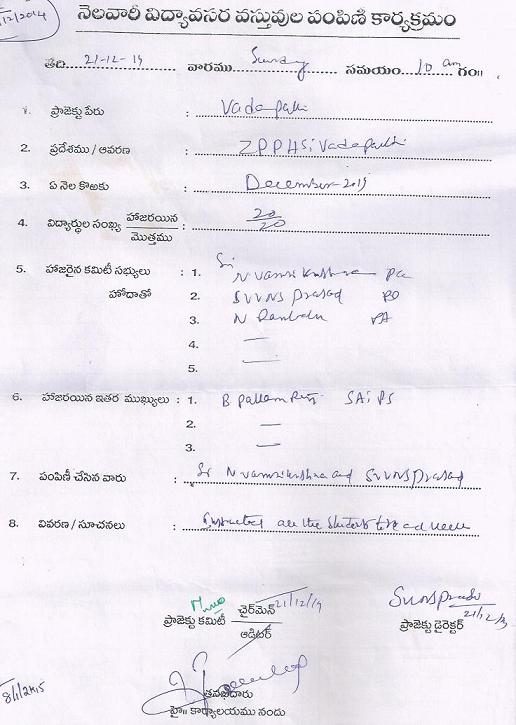 12/2014
నెలవారీ విద్యావసర వస్తువుల పంపిణి కార్యక్రమం
తేది 21-12-19 వారము Sunday సమయం 10 am గం॥
1. ప్రాజెక్టు పేరు : Vadapalli
2. ప్రదేశము / ఆవరణ : ZPPHS, Vadapalli
3. ఏ నెల కొఱకు : December-2019
4. విద్యార్థుల సంఖ్య హాజరయిన / మొత్తము : 20/20
5. హాజరైన కమిటీ సభ్యులు : 1. Sri N Vamsikrishna PC
హోదాతో 2. SVVNS Prasad PD
3. N Rambabu PA
4. —
5. —
6. హాజరయిన ఇతర ముఖ్యులు : 1. B SAiPS
2. —
3. —
7. పంపిణీ చేసిన వారు : Sri N Vamsikrishna and SVVNS Prasad
8. వివరణ / సూచనలు : Instructed all the students to read well
ప్రాజెక్టు కమిటీ చైర్‌మెన్ / ఆడిటర్ 21/12/19
SVVNSPrasad 21/12/19
ప్రాజెక్టు డైరెక్టర్
తనఖీదారు
హై॥ కార్యాలయము నందు
8/1/2015